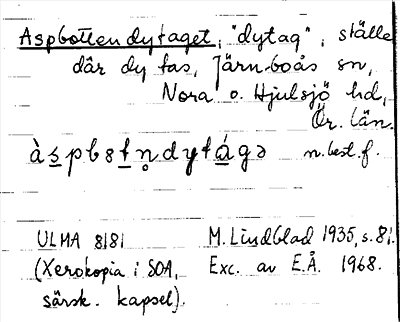 Aspbottendytaget, "dytag", ställe
där dy tas, Järnboås sn,
Nora o. Hjulsjö hd,
Ör. län.
àspbstn̥dytágə n. best. f.
ULMA 8181 M. Lindblad 1935, s. 81.
(Xerokopia i SOA, Exc. av E.Å. 1968.
särsk. kapsel).